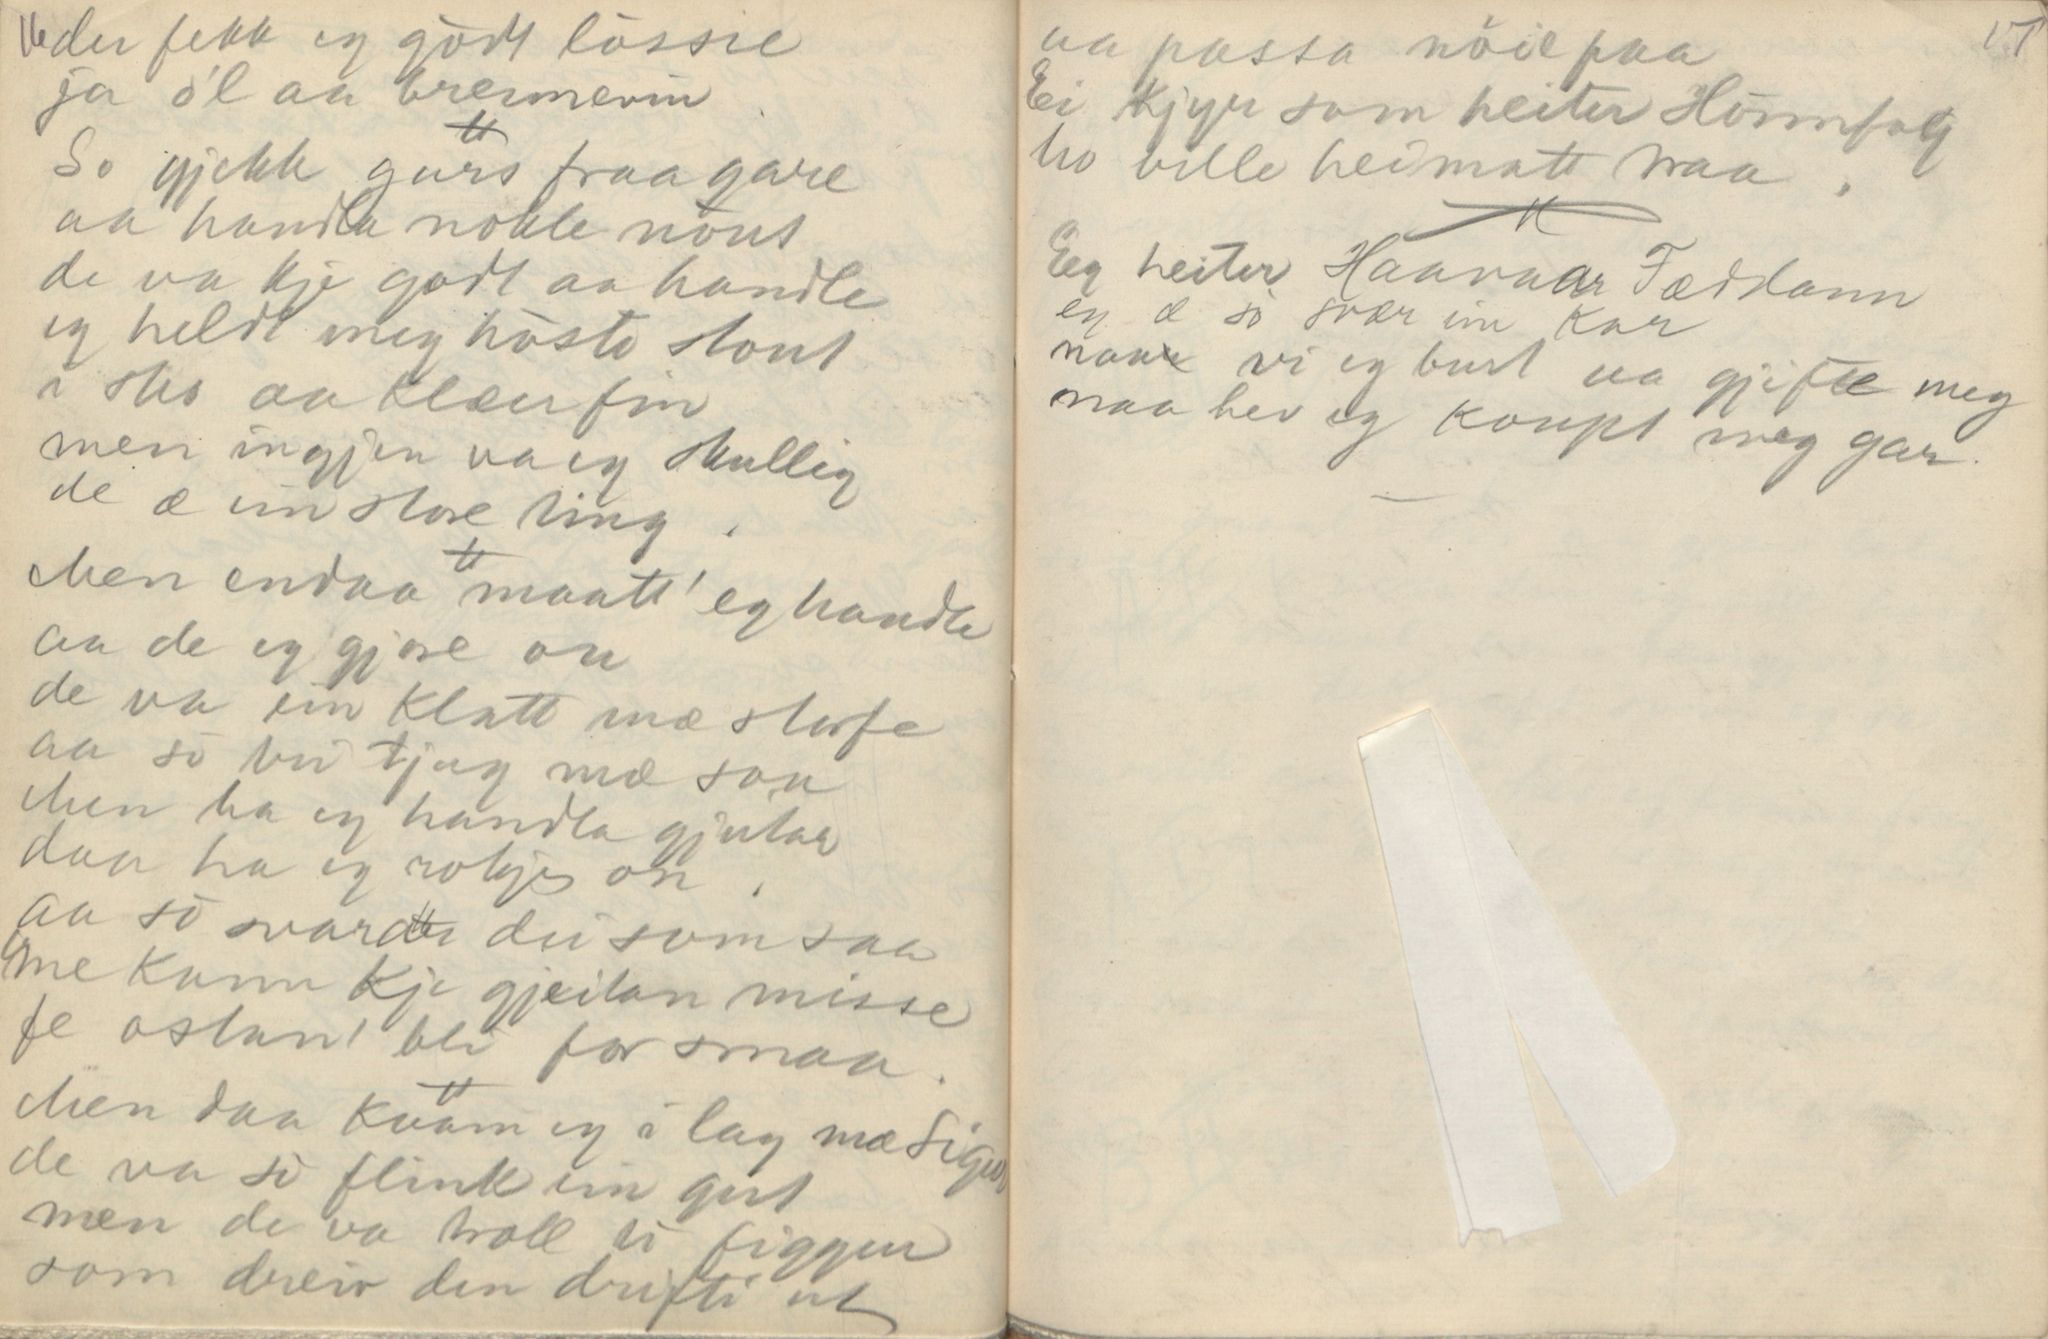 der fekk eg gôdt lôssie
ja ôl aa brennevin
So gjekk gars fraa gare
aa handla nokle nôut
de va kje godt aa handle
eg heldt meg hôste stout
i sko aa klæer fin
men ingjen va eg skullig
de æ ein store ting.
Men endaa maatt' eg handle
aa de eg gjore on
de va ein klatt mæ storfe
aa sô tri tjug mæ son
Men ha eg handla gjeitar
daa ha eg on.
aa sô svarde dei som saa
me kann kje gjeitan misse
fe ostan' bli for smaa.
Men daa kvam eg i lag mæ Sigur
de va sô flink ein gut
men de va troll ti figgur
som dreiv den drifti ut
aa passa nôie paa
Ei kjyr som heiter Hônnfolg
ho ville heimatt traa.
Eeg heiter Haavaar Fædlann
eg æ sô svær ein kar
naar vi eg burt aa gjifte meg
naa hev eg koupt meg gar.